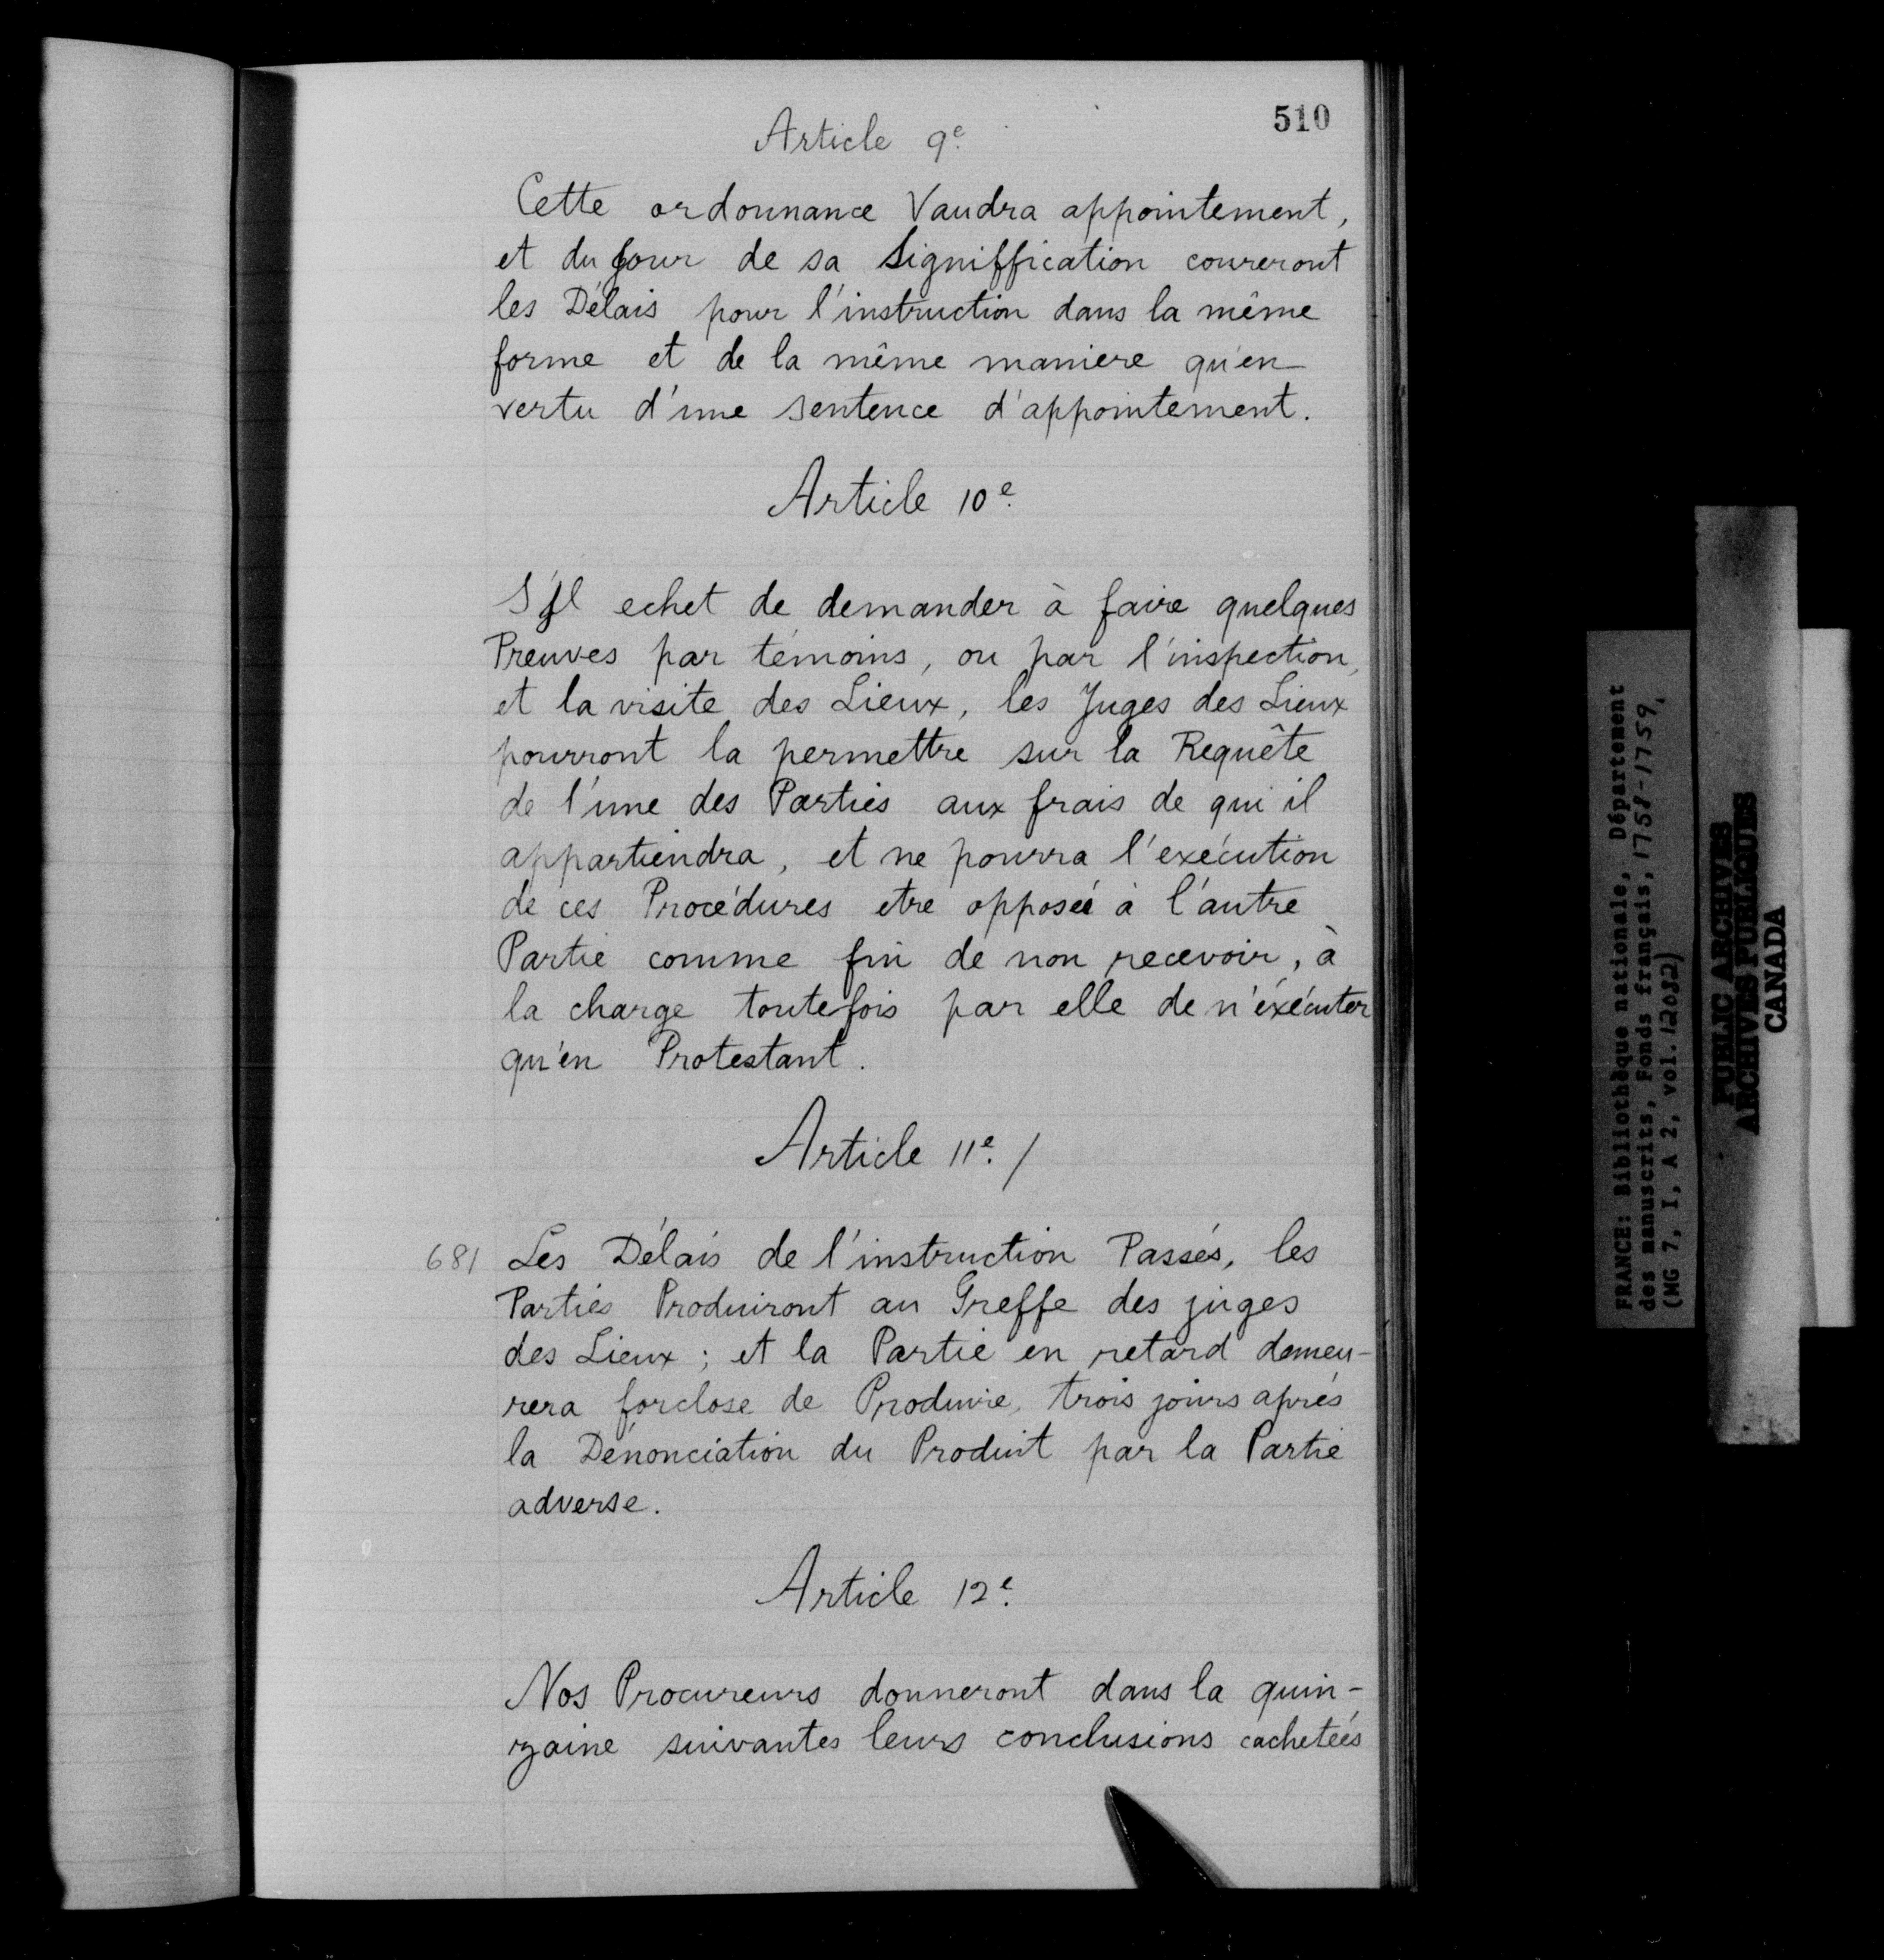 510
Article 9e.
Cette ordonnance Vaudra appointement,
et du jour de sa Signiffication coureront
les Délais pour l'instruction dans la même
forme et de la même maniere qu'en
vertu d'une sentence d'appointement.
Article 10e.
S'Jl echet de demander à faire quelques
Preuves par témoins, ou par l'inspection,
et la visite des Lieux, les Juges des Lieux
pourront la permettre sur la Requête
de l'une des Parties aux frais de qui il
appartiendra, et ne pourra l'exécution
de ces Procédures etre opposée à l'autre
Partie comme fin de non recevoir, à
la charge toutefois par elle de n'éxécuter
qu'en Protestant.
Article 11e. /
681 Les Délais de l'instruction Passés, les
Parties Produiront au Greffe des juges
des Lieux ; et la Partie en retard demeu-
rera forclose de Produire, trois jours aprés
la Dénonciation du Produit par la Partie
adverse.
Article 12e.
Nos Procureurs donneront dans la quin-
zaine suivantes leurs conclusions cachetées
FRANCE: Bibliothèque nationale, Département
des manuscrits, Fonds français, 1758-1759,
(MG 7, I, A 2, vol. 12032)
PUBLIC ARCHIVES
ARCHIVES PUBLIQUES
CANADA